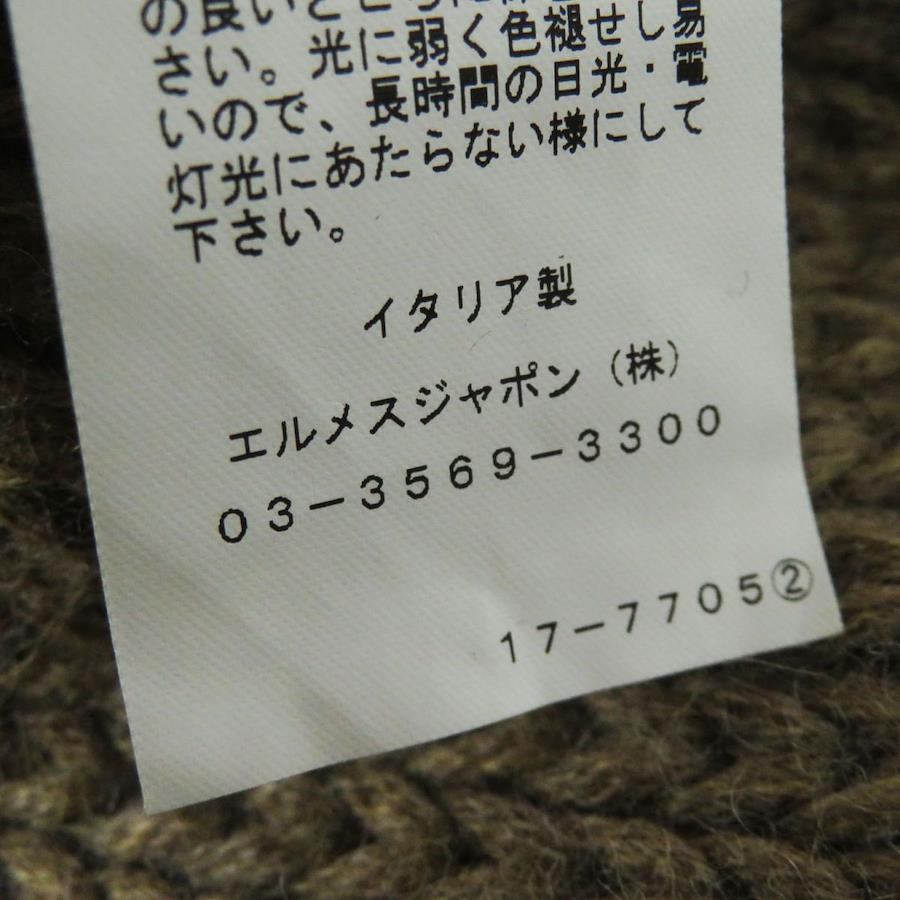 の良いところに
さい。光に弱く色褪せし易
いので、長時間の日光・電
灯光にあたらない様にして
下さい。
イタリア製
エルメスジャポン（株）
０３－３５６９－３３００
１７－７７０５②